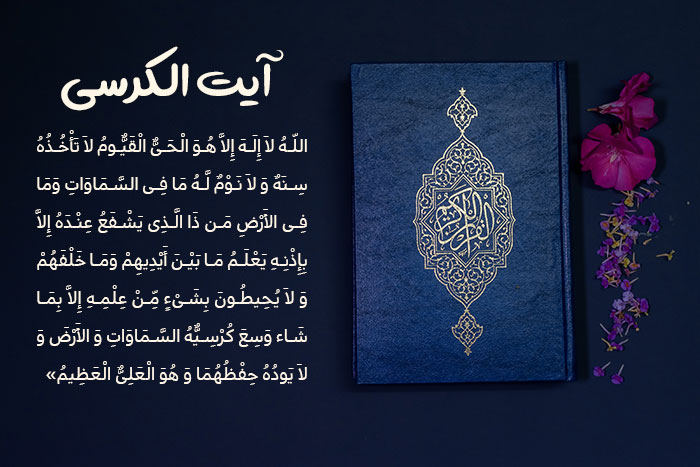 آیت الکرسی
اللّهُ لاَ إِلَهَ إِلاَّ هُوَ الْحَيُّ الْقَيُّومُ لاَ تَأْخُذُهُ
سِنَةٌ وَ لاَ نَوْمٌ لَّهُ مَا فِی السَّمَاوَاتِ وَمَا
فِی الأَرْضِ مَن ذَا الَّذِی یَشْفَعُ عِنْدَهُ إِلاَّ
بِإِذْنِهِ یَعْلَمُ مَا بَیْنَ أَیْدِیهِمْ وَمَا خَلْفَهُمْ
وَ لاَ یُحِیطُونَ بِشَیْءٍ مِّنْ عِلْمِهِ إِلاَّ بِمَا
شَاء وَسِعَ کُرْسِیُّهُ السَّمَاوَاتِ وَ الأَرْضَ وَ
لاَ یَودُهُ حِفْظُهُمَا وَ هُوَ الْعَلِیُّ الْعَظِیمُ»
القرآن الکریم